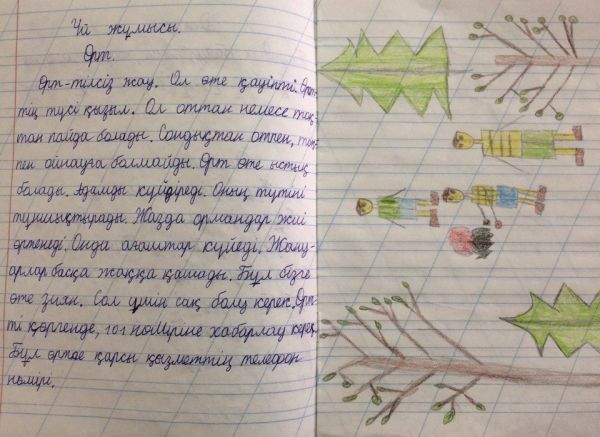 Үй жұмысы.
Өрт.
Өрт-тілсіз жау. Ол өте қауіпті. Өрт-
тің түсі қызыл. Ол оттан немесе тоқ-
тан пайда болады. Сондықтан отпен, тоқ-
пен ойнауға болмайды. Өрт өте ыстық
болады. Адамды күйдіреді. Оның түтіні
тұншықтырады. Жазда ормандар жиі
өртенеді. Онда ағаштар күйеді. Жану-
арлар басқа жаққа қашады. Бұл бізге
өте зиян. Сол үшін сақ болу керек. Өрт-
ті көргенде, 101 нөміріне хабарлау керек.
Бұл өртке қарсы қызметтің телефон
нөмірі.